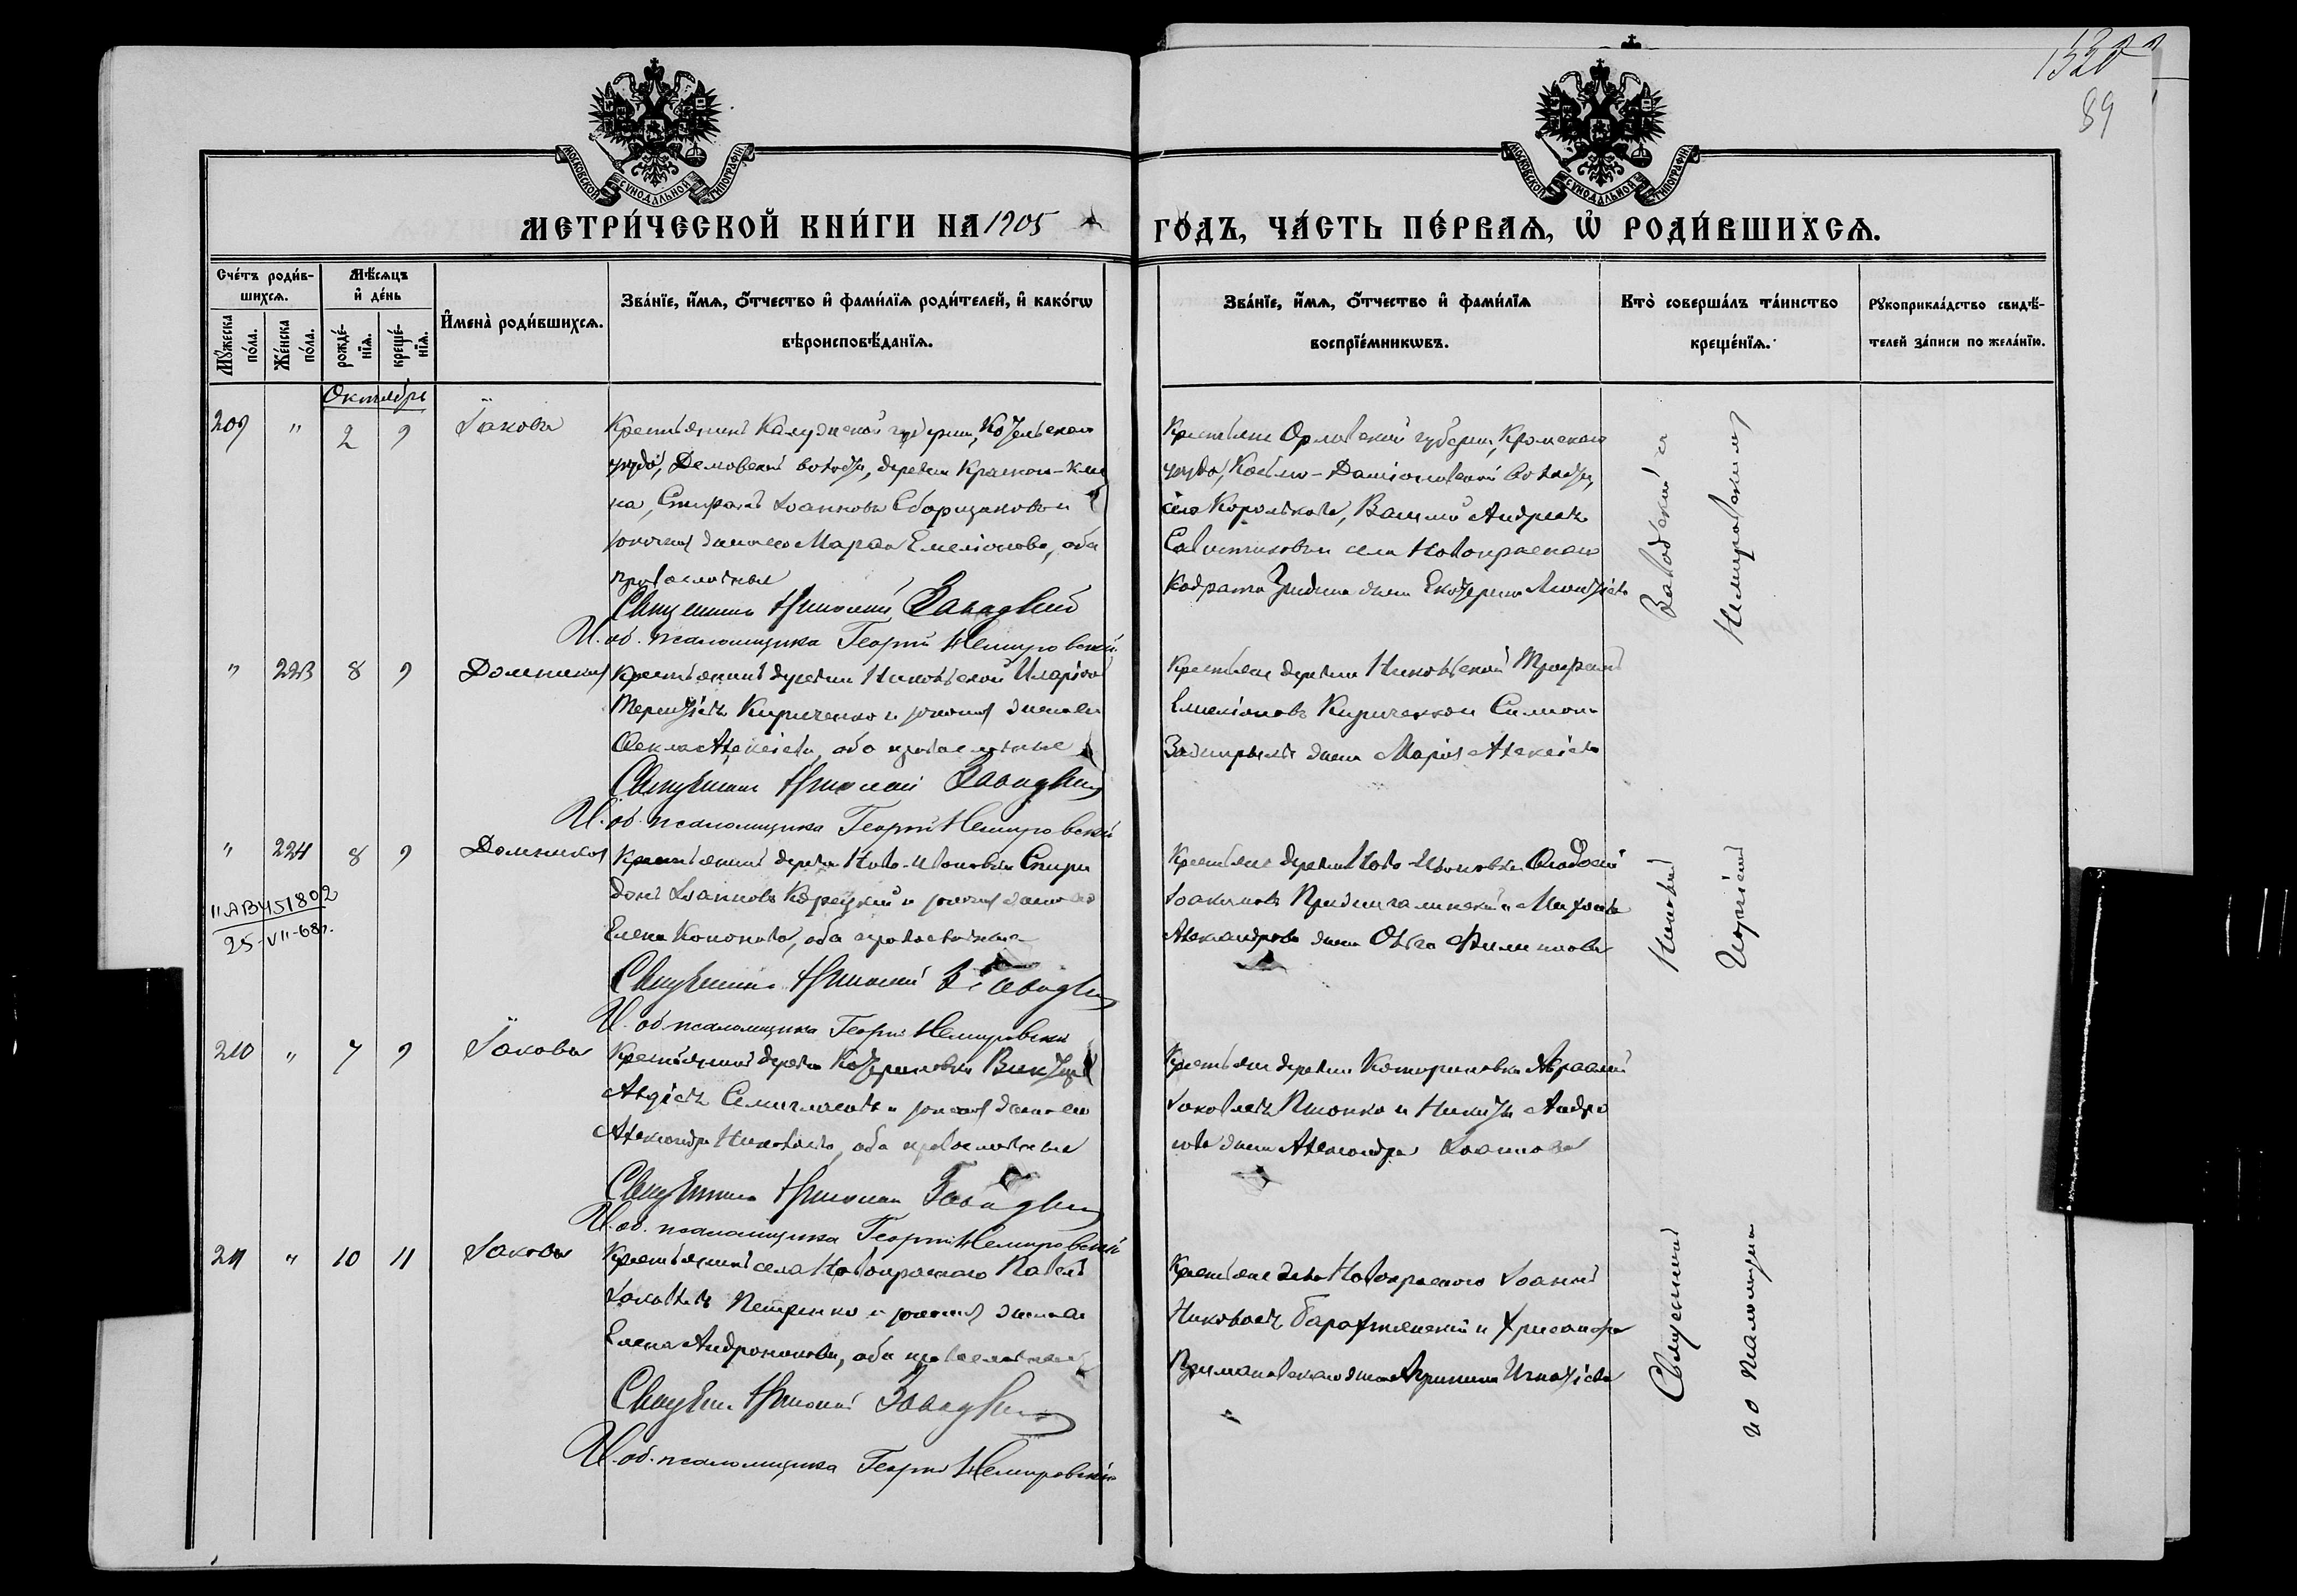 1320
89
МОСКОВСКОЙ СѴНОДАЛЬНОЙ ТИПОГРАФІИ
МОСКОВСКОЙ СѴНОДАЛЬНОЙ ТИПОГРАФІИ
МЕТРИ́ЧЕСКОЙ КНИ́ГИ НА 1905
ГО́ДЪ, ЧА́СТЬ ПЕ́РВАѦ, Ѽ РОДИ́ВШИХСѦ.
Сче́тъ роди́в-
шихсѧ.
Мꙋ́жеска по́ла.
Же́нска по́ла.
Мѣ́сѧцъ
и҆ де́нь
рожде́-
нїѧ.
креще́-
нїѧ.
И҆мена̀ роди́вшихсѧ.
Зва́нїе, и҆́мѧ, ѻ҆́тчество и҆ фами́лїѧ роди́телей, и҆ како́гѡ
вѣроисповѣ́данїѧ.
Зва́нїе, и҆́мѧ, ѻ҆́тчество и҆ фами́лїѧ
воспрїе́мникѡвъ.
Кто̀ соверша́лъ та́инство
креще́нїѧ.
Рꙋкоприкла́дство свидѣ́-
телей за́писи по жела́нїю.
Октябрь
209 " 2 9 Іаковъ
Крестьянинъ Калужской губерніи, Козельскаго
уѣзда, волости, деревни
Іоанновъ и
законная жена его Марѳа Емеліанова, оба
православные
Священникъ Николай Завадскій
И. об. псаломщика Георгій Немировскій
Крестьяне Орловской губерніи, Кромскаго
уѣзда, волости,
села Королькова, Василій Андреевъ
и села Новокраснаго
жена Екатерина
Завадскій и
Немировскій
" 223 8 9 Домникія
Крестьянинъ деревни Николаевской Иларіонъ
Терентіевъ Кириченко и законная жена его
Ѳекла Алексіева, оба православные
Священникъ Николай Завадскій
И. об. псаломщика Георгій Немировскій
Крестьяне деревни Николаевской Трофимъ
Емеліановъ Кириченко и Симеона
жена Марія Алексіева
" 224 8 9 Домникія
II АВ 451802
25-VII-68г.
Крестьянинъ деревни Ново- Спири
донъ Іоанновъ Корецкій и законная жена его
Елена Кононова, оба православные
Священникъ Николай Завадскій
И. об. псаломщика Георгій Немировскій
Крестьяне деревни Ново- Ѳеодосій
Іоакимовъ и Михаила
Александрова жена Ольга Филиппова
Николай
Георгій
210 " 7 9 Іаковъ
Крестьянинъ деревни Катериновки Викторъ
Авдіевъ и законная жена его
Александра Николаева, оба православные
Священникъ Николай Завадскій
И. об. псаломщика Георгій Немировскій
Крестьяне деревни Катериновки Авраамій
Іаковлевъ и Никиты Андре
ева жена Александра Іоаннова
211 " 10 11 Іаковъ
Крестьянинъ села Новокраснаго Павелъ
Іаковлевъ Петренко и законная жена его
Елена Андроникова, оба православные
Священникъ Николай Завадскій
И. об. псаломщика Георгій Немировскій
Крестьяне села Новокраснаго Іоаннъ
Николаевъ и Хрисанфа
жена Агрипина Игнатіева
Священникъ
и о псаломщика